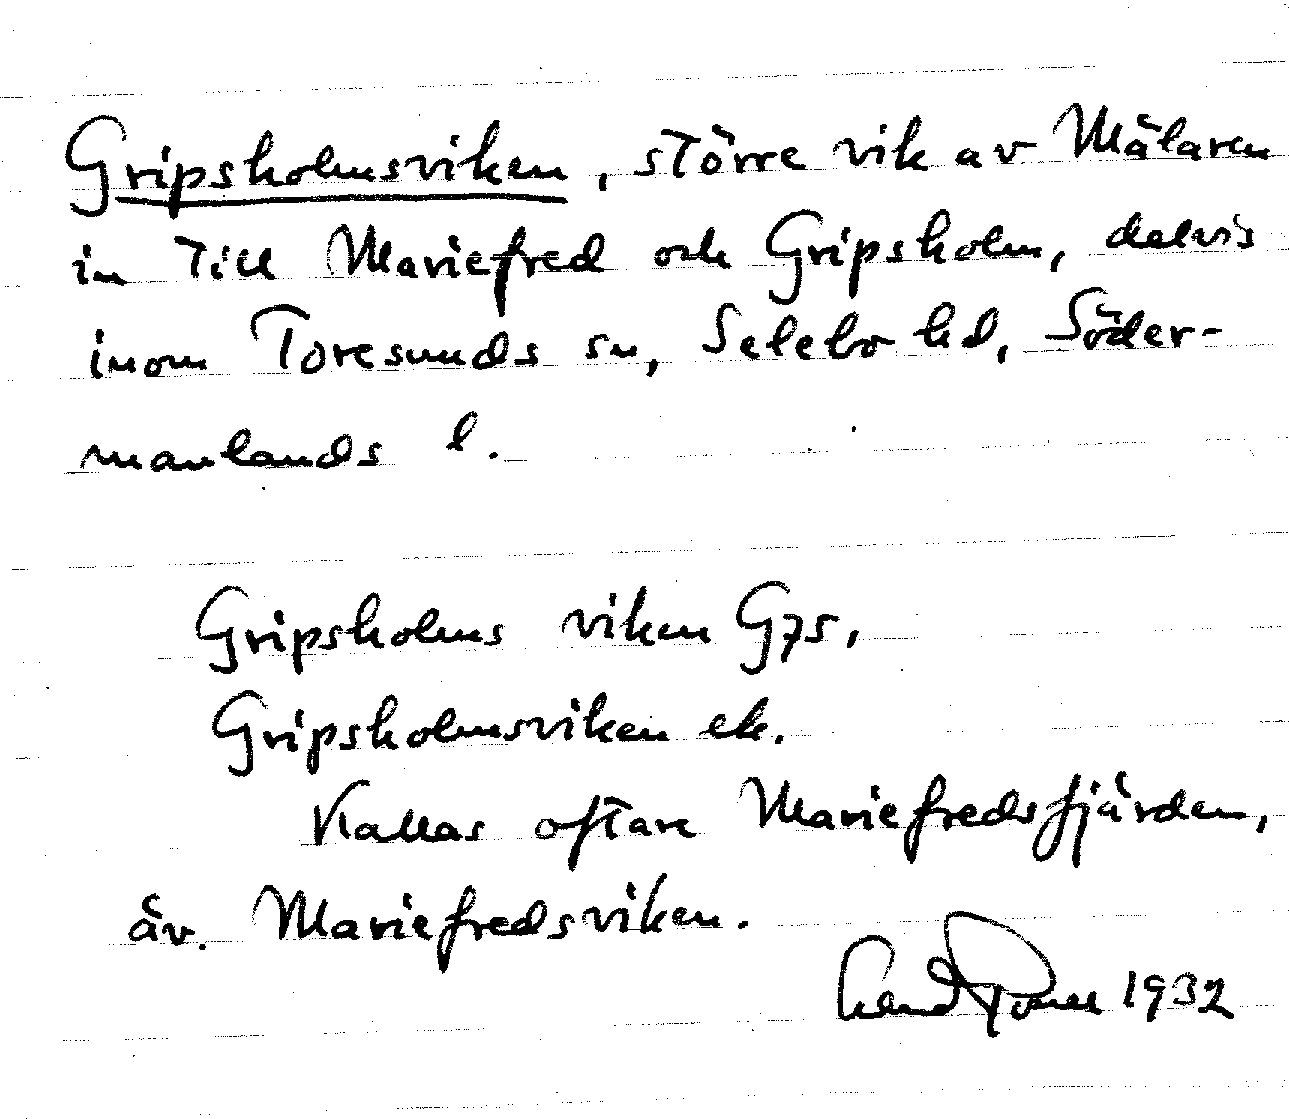 Gripsholmsviken, större vik av Mälaren
in till Mariefred och Gripsholm, delvis
inom Toresunds sn, Selebo hd, Söder-
manlands l.
Gripsholms viken G75,
Gripsholmsviken ek.
Kallas oftare Mariefredsfjärden,
äv. Mariefredsviken.
1932